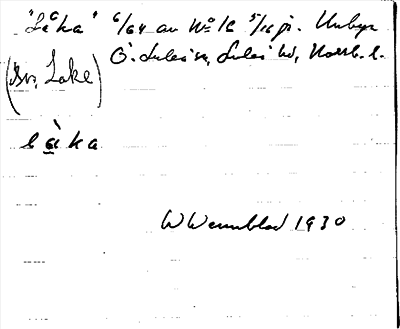 "Låka" 6/64 av No 16 5/16 pr. Unbyn
Ö. Luleå sn, Luleå td, Norrb. l.
(Sv. Lake)
làka
W Wennblad 1930